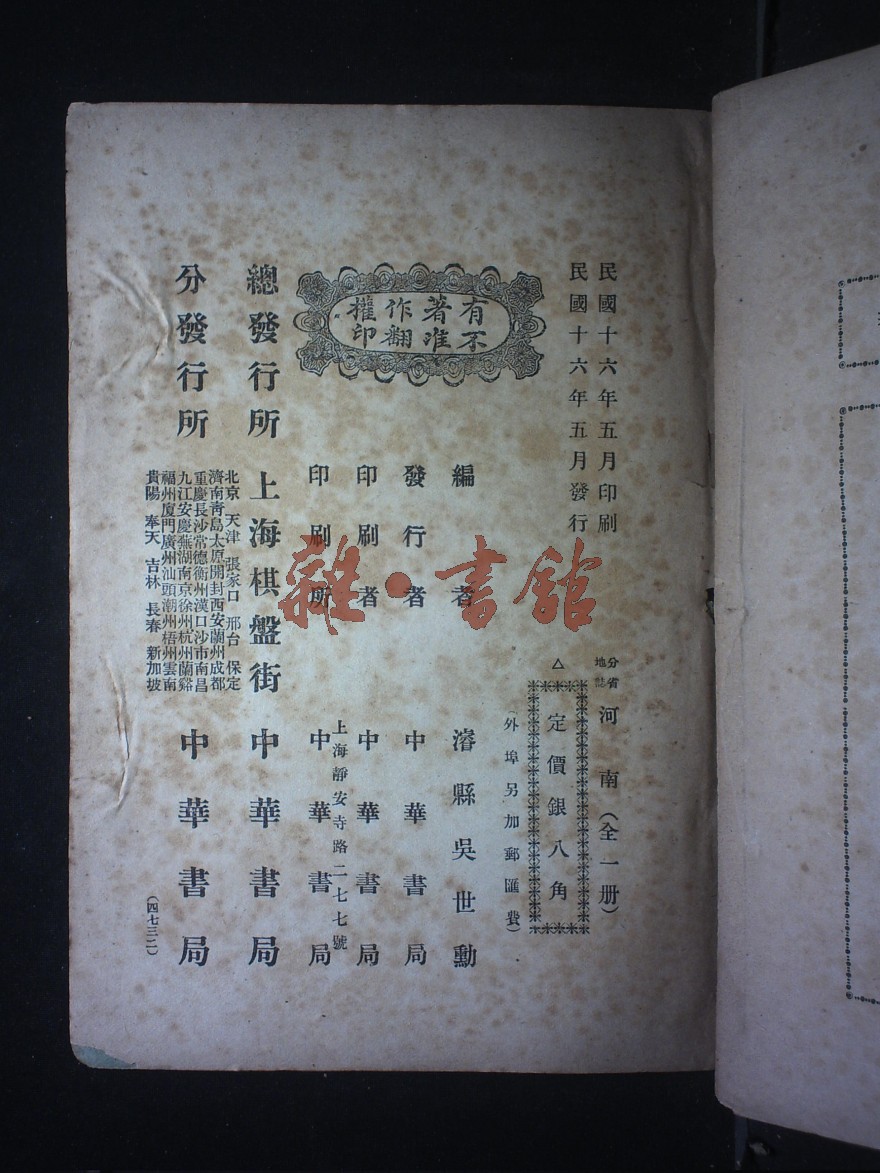 民國十六年五月印刷
民國十六年五月發行
分省地誌 河南（全一册）
△定價銀八角
（外埠另加郵匯費）
有著作權
不准翻印
編者 濬縣吳世勳
發行者 中華書局
印刷者 中華書局
上海靜安寺路二七七號
印刷所 中華書局
總發行所 上海棋盤街 中華書局
北京 天津 張家口 邢台 保定
濟南青島太原開封西安蘭州成都
重慶長沙常德衡州漢口沙市南昌
九江安慶蕪湖南京徐州杭州蘭谿
福州廈門廣州汕頭潮州梧州雲南
貴陽 奉天 吉林 長春 新加坡
分發行所 中華書局
（四七三二）
雜·書館